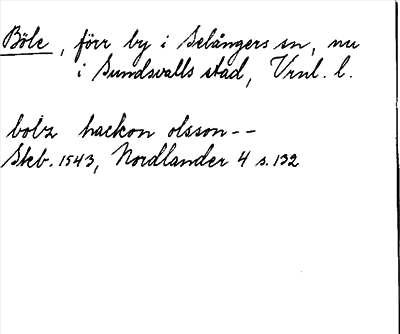 Böle, förr by i Selångers sn, nu
i Sundsvalls stad, Vrnl. l.
bolz hackon olsson--
Skb. 1543, Nordlander 4 s. 132